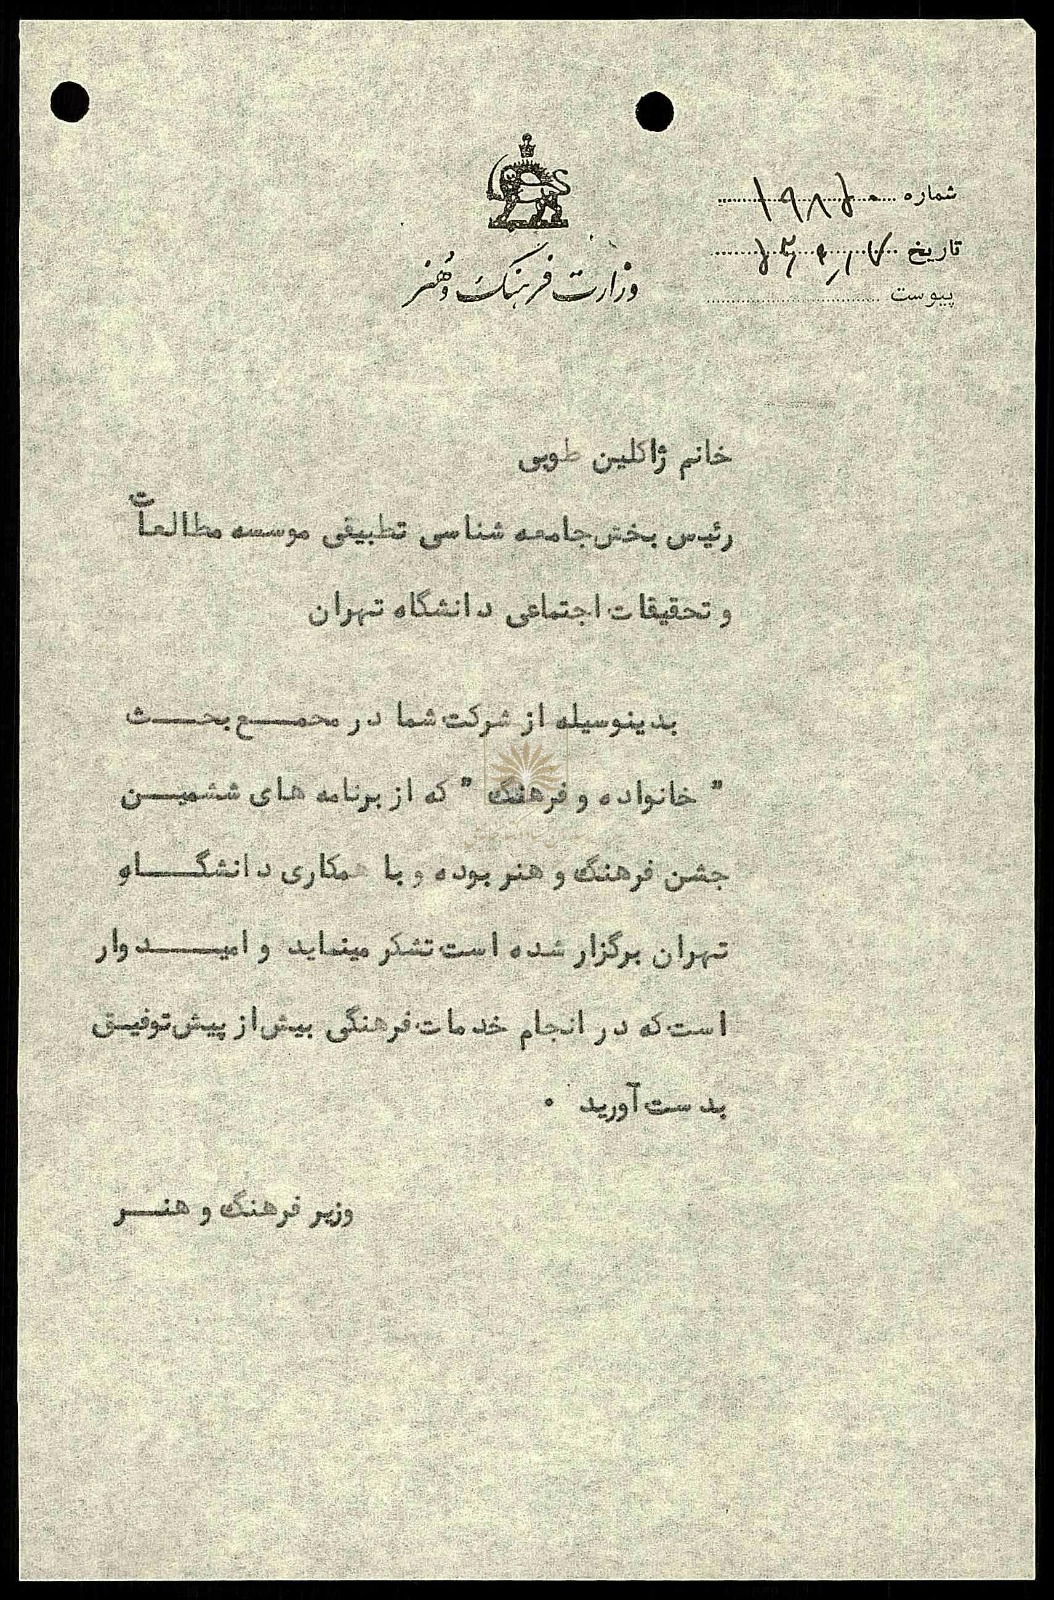 شماره
تاریخ
پیوست
وزارت فرهنگ و هنر
خانم ژاکلین طوبی
رئیس بخش جامعه شناسی تطبیقی موسسه مطالعات
و تحقیقات اجتماعی دانشگاه تهران
بدینوسیله از شرکت شما در مجمــع بحــث
" خانواده و فرهنگ " که از برنامه های ششمیــن
جشن فرهنگ و هنر بوده و با همکاری دانشگــاه
تهران برگزار شده است تشکر مینماید و امیــدوار
است که در انجام خدمات فرهنگی بیش از پیش توفیــق
بدست آورید .
وزیر فرهنگ و هنــر